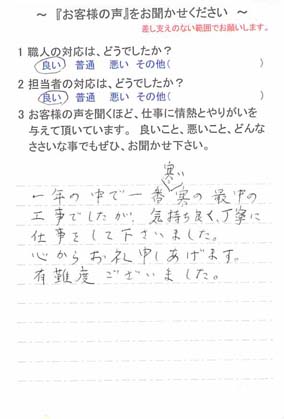 ～『お客様の声』をお聞かせください～
差し支えのない範囲でお願いします。
1 職人の対応は、どうでしたか？
良い 普通 悪い その他( )
2 担当者の対応は、どうでしたか？
良い 普通 悪い その他( )
3 お客様の声を聞くほど、仕事に情熱とやりがいを
与えて頂いています。 良いこと、悪いこと、どんな
ささいな事でもぜひ、お聞かせ下さい。
寒い
一年の中で一番寒の最中の
工事でしたが、気持ち良く、丁寧に
仕事をして下さいました。
心からお礼申しあげます。
有難度ございました。